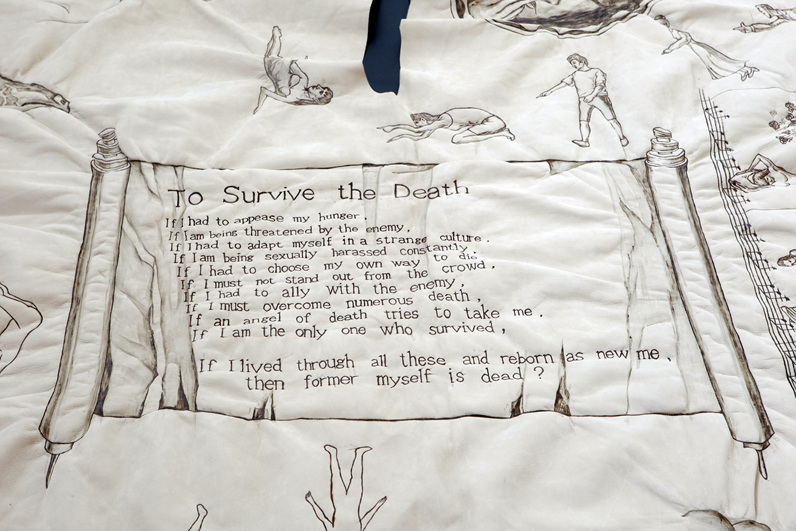 To Survive the Death
If I had to appease my hunger,
If I am being threatened by the enemy,
If I had to adapt myself in a strange culture.
If I am being sexually harassed constantly,
If I had to choose my own way to die,
If I must not stand out from the crowd,
If I had to ally with the enemy,
If I must overcome numerous death,
If an angel of death tries to take me.
If I am the only one who survived,
If I lived through all these and reborn as new me,
then former myself is dead?